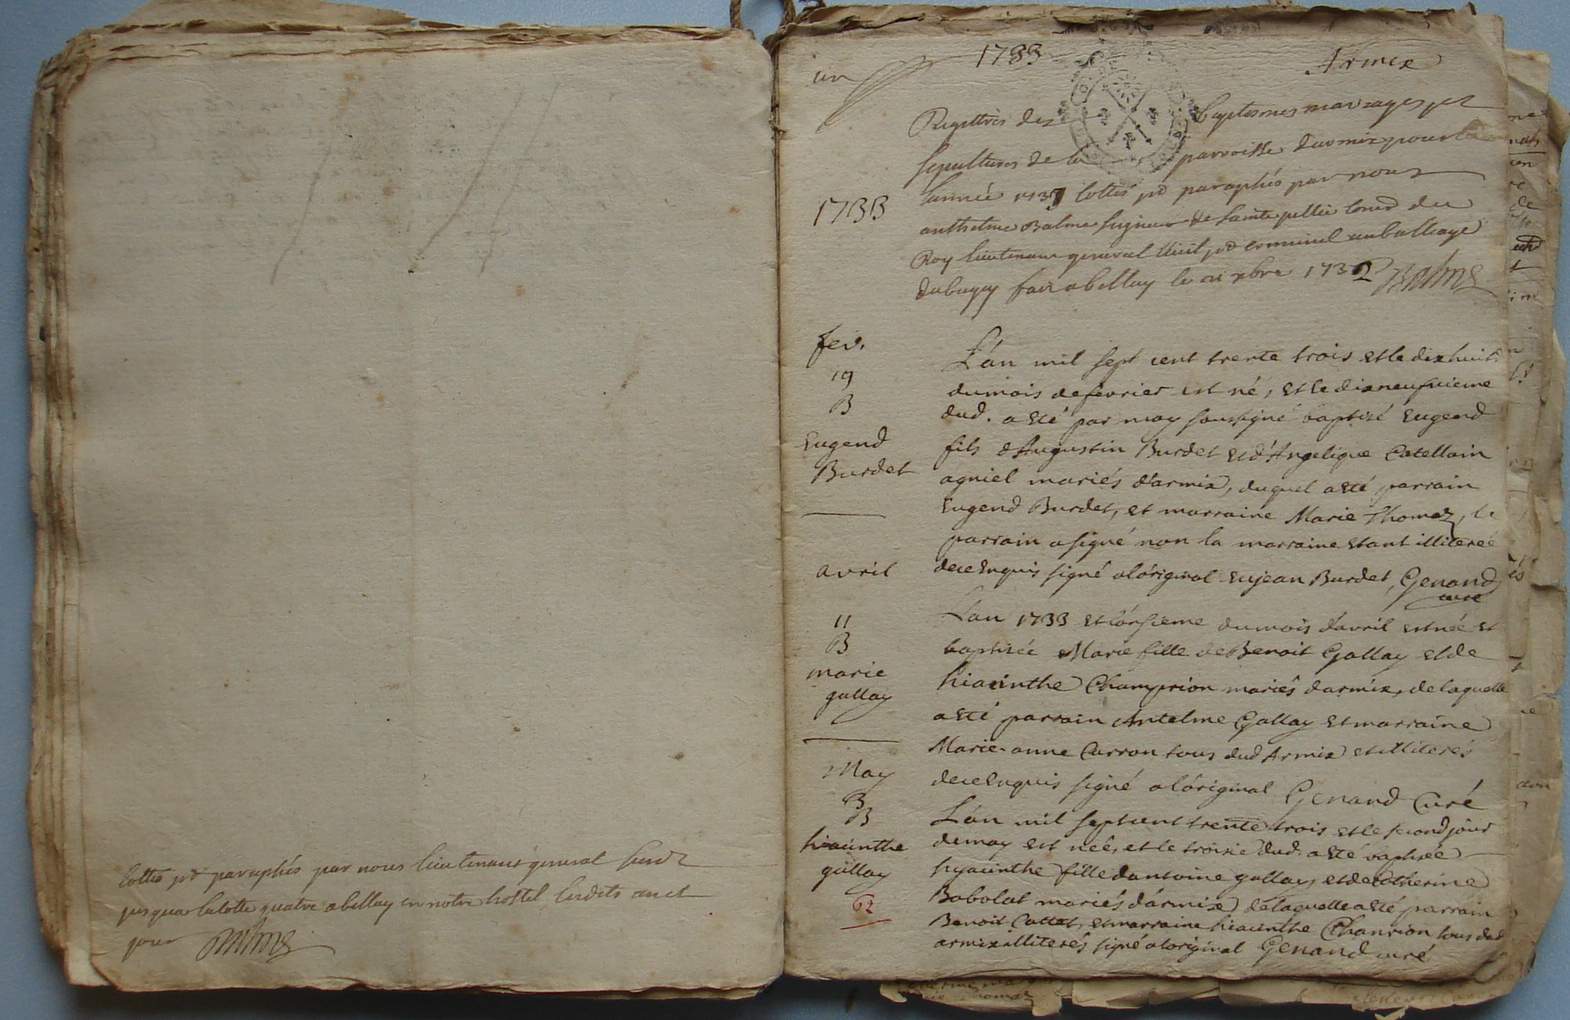 Cottés et paraphés par nous lieutenant general
jusqua la cotte quatre a bellay en notre hostel lesdits an et
jour Balme
un 1733 Armix
Registres des baptesmes mariages et
sepultures de la parroisse darmix pour
lannée 1733 cottés et paraphés par nous
anthelme Balme seigneur de Sainte
Roy lieutenant general civil et criminel au balliage
du bugey fait a bellay le xbre 1732 Balme
1733
fev.
19
B
Eugend
Burdet
L'an mil sept cent trente trois et le dix huit
du mois de fevrier est né, et le dixneufvieme
dud. a eté par moy soussigné baptisé Eugend
fils d'Augustin Burdet et d'Angelique Catellain
agniel mariés d'armix, duquel a eté parrain
Eugend Burdet, et marraine Marie Thomaz, le
parrain a signé non la marraine etant illiteree
de ce enquis signé a l'original Eujean Burdet, Genand
curé
avril
11
B
marie
gallay
L'an 1733 et l'onsieme du mois d'avril est née et
baptisée Marie fille de Benoit Gallay et de
hiacinthe Champrion mariés d'armix, de laquelle
a eté parrain Antelme Gallay et marraine
Marie-anne Curron tous dud Armix et illiterés
de ce enquis signé a l'original Genand Curé
May
3
B
hiacinthe
gallay
62
L'an mil sept cent trente trois et le second jour
de may est née, et le troisie dud. a eté baptisée
hyacinthe fille d'antoine gallay, et de Catherine
Bobolat mariés d'armix de laquelle a eté parrain
Benoit Cattet, et marraine hiacinthe Chanrion tous dud
armix illiterés signé a l'original Genand curé